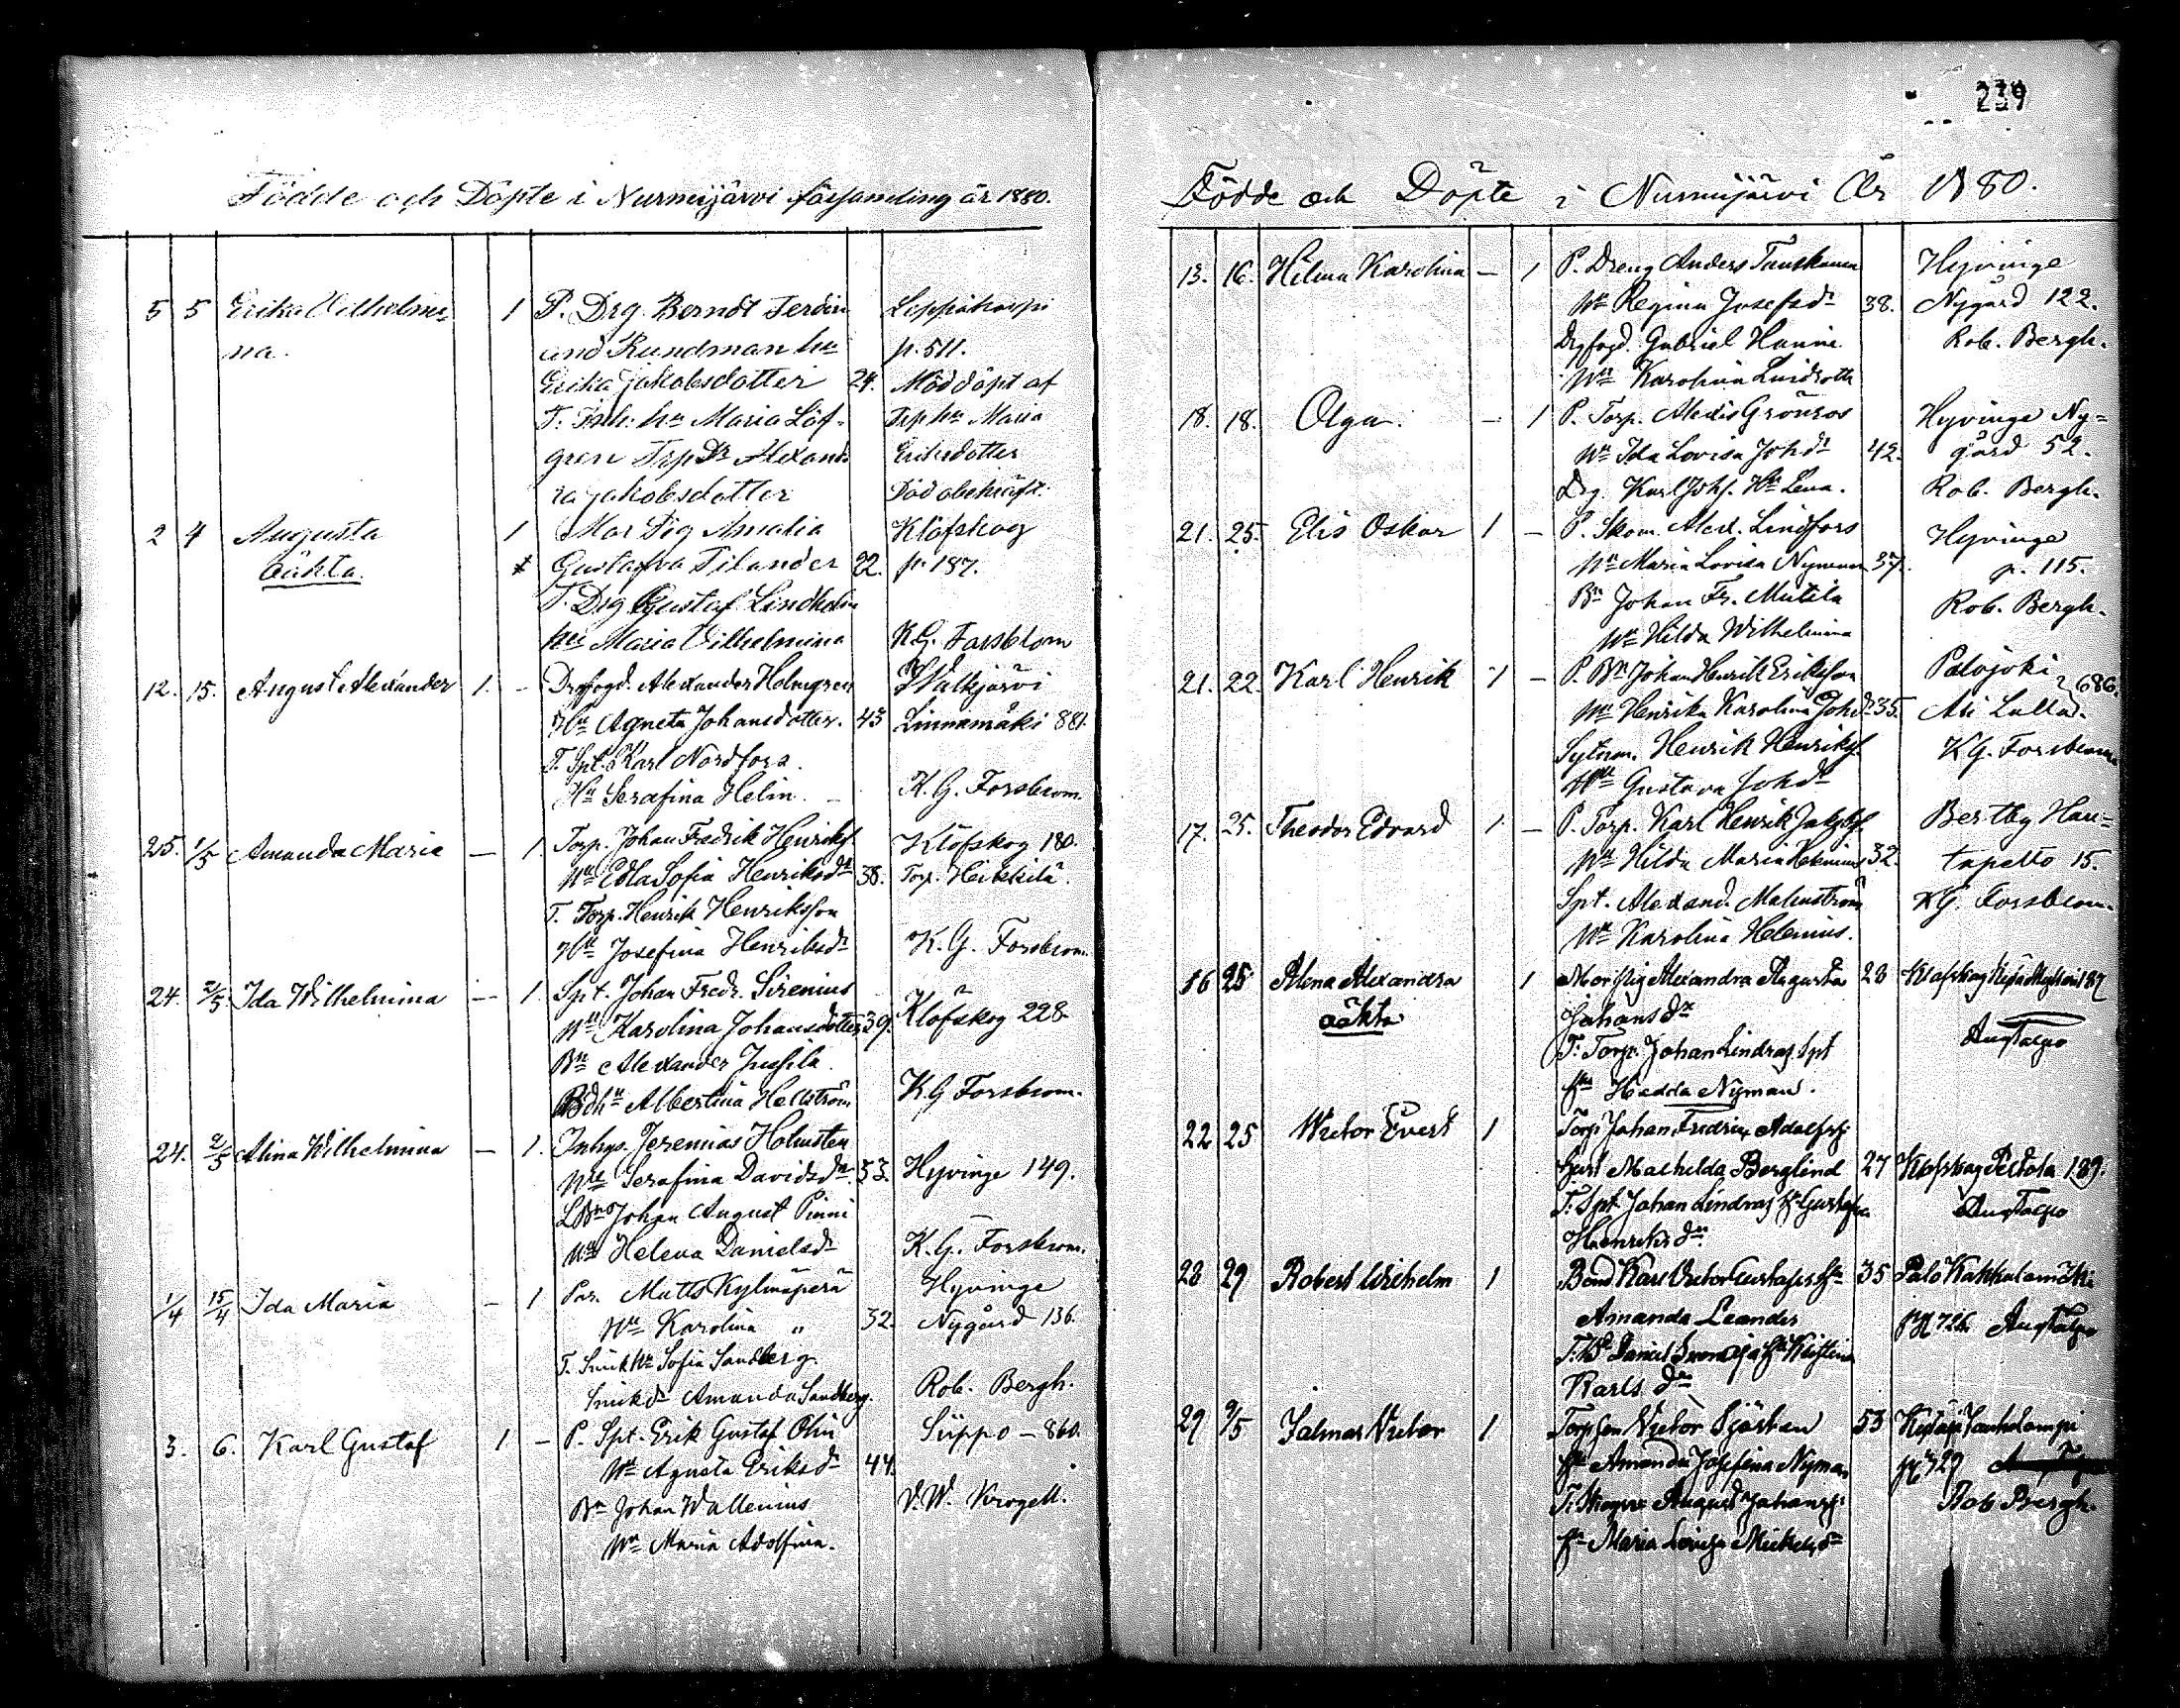 239
Födde och Döpte i Nurmijärvi församling år 1880.
5 5 Erika Vilhelmi= 1 P. Drg. Berndt Ferdin Leppäkorpi
na. and Rundman hu p. 511.
Erika Jakobsdotter 24. Nöddöpt af
T. Inh. hu Maria Löf- Trp hu Maria
gren Trp Dr Alexand Eriksdotter
ra Jakobsdotter
2 4 Augusta 1 Mor Pig Amalia Klöfskog
oäkta. Gustafva Tilander 22. p. 187.
T. Drg Gustaf Lindholm
hu Maria Vilhelmina K.G. Forsblom
12. 15. August Alexander 1. – Drgfogd. Alexander Holmgren Valkjärvi
Hu Agneta Johansdotter. 43 Linnamäki 881.
T. Spt. Karl Nordfors.
Hu Serafina Helin. – K. G. Forsblom.
25. 1/5 Amanda Maria — 1. Torp. Johan Fredrik Henriksf. Klöfskog 180.
Hu Edla Sofia Henriksdr 38. Torp. Heikkilä.
T. Torp. Henrik Henriksson
Hu Josefina Henriksdr K. G. Forsblom.
24. 2/5 Ida Wilhelmina — 1. Spt. Johan Fredr. Sirenius
Hu Karolina Johansdotter 39. Klöfskog 228
Bn Alexander Jussila.
Bdhu Albertina Hellström K.G Forsblom.
24. 2/5 Alina Wilhelmina — 1. Inhys. Jeremias Holmsten
Hu Serafina Davidsdr 33. Hyvinge 149.
Johan August Pinni
Hu Helena Danielsdr K. G. Forsblom.
1/4 15/4 Ida Maria — 1 Par. Matts Kylmäperä Hyvinge
Hu Karolina " 32. Nygård 136.
T. Smik Hu Sofia Sandberg.
Smikdr Amanda Sandberg. Rob. Bergh.
3. 6. Karl Gustaf 1. – P. Spt. Erik Gustaf Olin Siippo – 860.
Hu Agneta Eriksdr 44.
Bn Johan Wallenius V. W. Krogell.
Hu Maria Adolfina.
Födde och Döpte i Nurmijärvi År 1880.
13. 16. Hilma Karolina — 1 P. Dreng Anders Tanskanen Hyvinge
Hu Regina Josefsdr 38. Nygård 122.
Drgfogd. Gabriel Hanni Rob. Bergh.
Hu Karolina Lindroth
18. 18. Olga. — 1 P. Torp. Alexis Grönroos Hyvinge Ny=
Hu Ida Lovisa Johdr 42. gård 52.
Drg. Karl Johs. Hu Lena. Rob. Bergh.
21. 25. Elis Oskar 1 – P. Skom. Alex. Lindfors Hyvinge
Hu Maria Lovisa Nyman 37. p. 115.
Bn Johan Fr. Mutila Rob. Bergh.
Hu Hilda Wilhelmina
21. 22. Karl Henrik 1 – P. Bn Johan Henrik Eriksson Palojoki 686.
Hu Henrika Karolina Johdr 35. Ali Lalla.
Sytnm. Henrik Henriksf. K G. Forsblom
Hu Gustava Johdr
17. 25. Theodor Edvard 1. – P. Torp. Karl Henrik Jakobsf. Bertby Han=
Hu Hilda Maria Helenius 32. tapelto 15.
Spt. Alexand. Malmström K G. Forsblom.
Hu Karolina Helenius.
16 25 Alma Alexandra 1 Mor Pig Alexandra Augusta 28 Klöfskog 187
oäkta Johans dr
T: Torp. Johan Lindroos Spt
hu Hedda Nyman.
22 25 Victor Evert 1 Torp Johan Fredrik Adolfsf.
Mathilda Berglind 27 Klöfskog Pietola 189.
T: Spt Johan Lindroos Hu Gustafva
Henriks dr.
28 29 Robert Wilhelm 1 Bond Karl Victor Gustafss hu 35 Palo
Amanda Leander 726.
T: Daniel Kristina
Karls dr
29 9/5 Jalmar Victor 1 Torp son Victor Sjöstran 53
hu Amanda Josefina Nyman 729
August Johansf. Rob Bergh.
hu Maria Lovisa Mickels dr